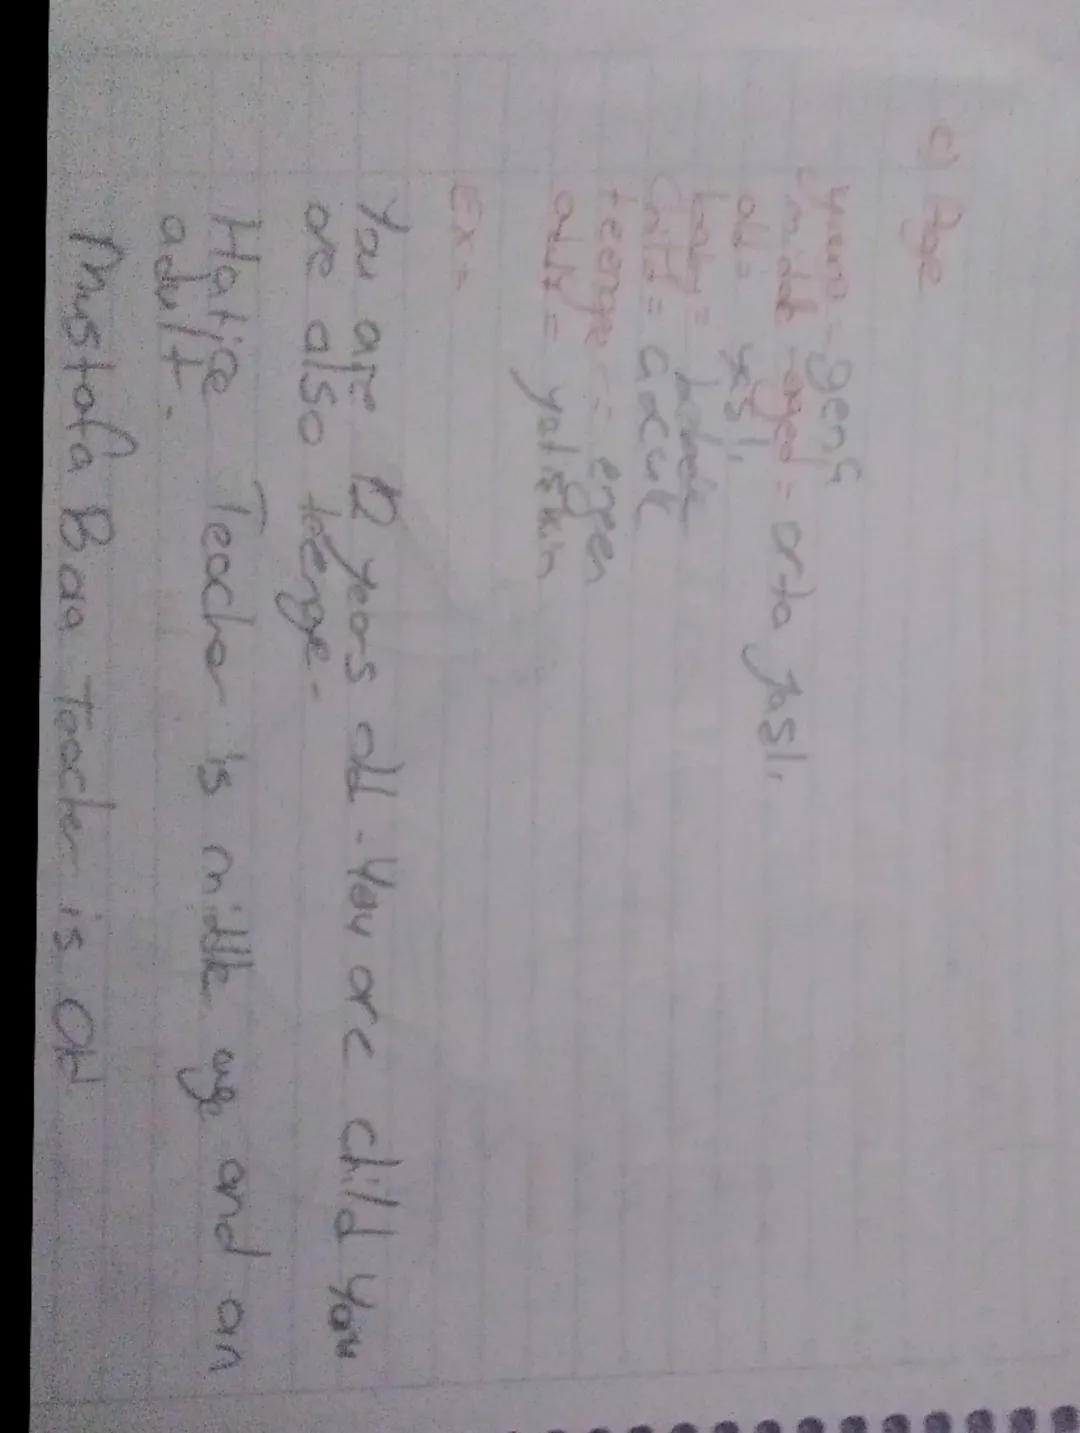 c) Age
young = genç
middle-aged = orta yaşlı
old = yaşlı
baby = bebek
child = çocuk
teenge = ergen
adult = yetişkin
Ex =
You are 12 years old. You are child you
are also teenge.
Hatice Teacher is middle age and an
adult.
Mustafa Teacher is old